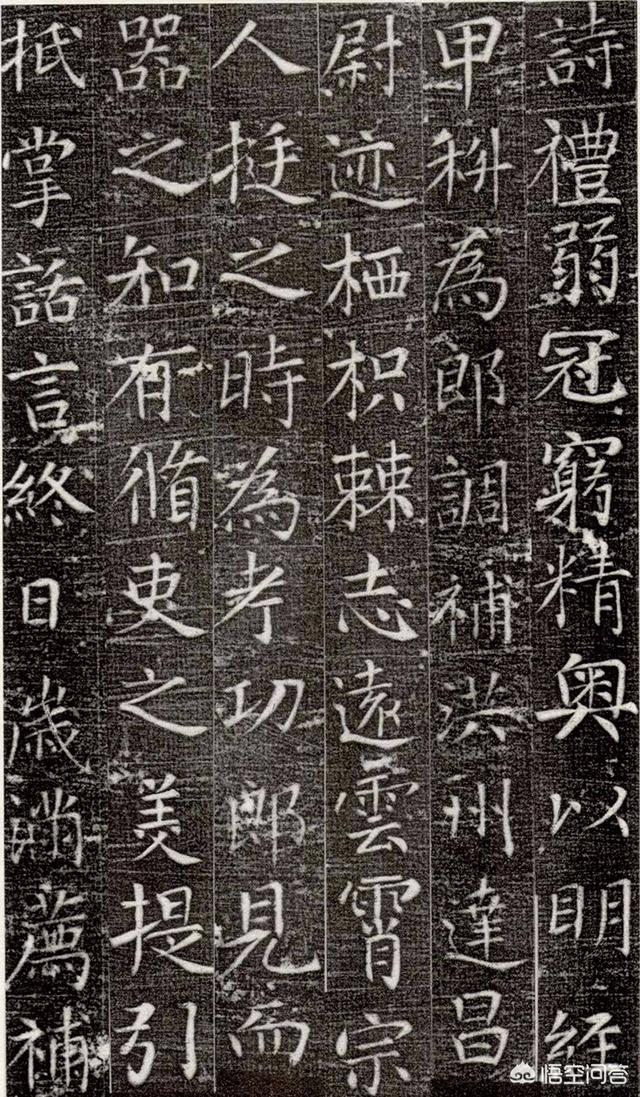 詩禮弱冠窮精奧以明經
甲科為郎調補洪州達昌
尉迹栖枳棘志遠雲霄宗
人挺之時為考功郎見而
器之知有脩吏之美提引
抵掌話言終日歲滿薦補
悟空问答